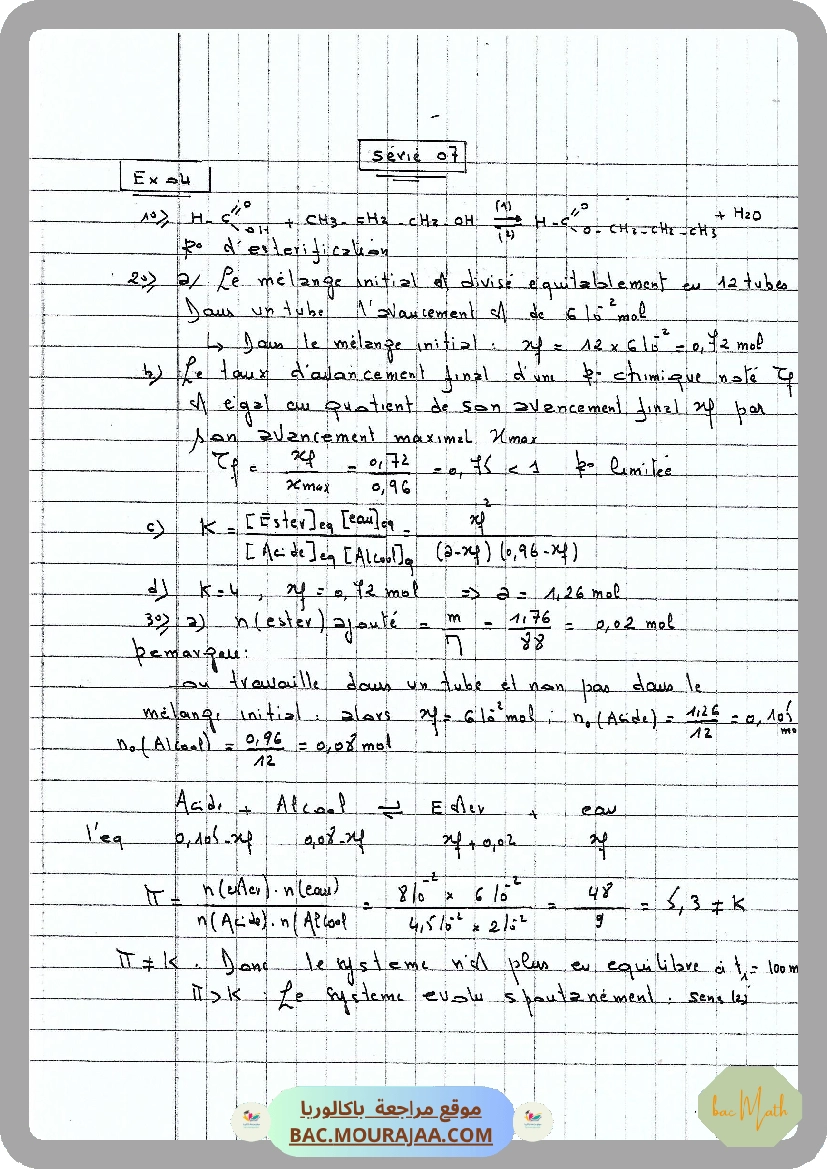 Série 07
Ex 04
1°) H-C(=O)OH + CH3-CH2-CH2-OH ⇌ (1) (2) H-C(=O)O-CH2-CH2-CH3 + H2O
R° d'esterification
2°) a/ Le mélange initial est divisé equitablement en 12 tubes
Dans un tube l'avancement est de 6 10^-2 mol
↳ Dans le mélange initial : xf = 12 x 6 10^-2 = 0,72 mol
b) Le taux d'avancement final d'une R° chimique noté τf
est egal au quotient de son avancement final xf par
son avancement maximal xmax
τf = xf/xmax = 0,72/0,96 = 0,75 < 1 R° limitée
c) K = [Ester]eq [eau]eq / [Acide]eq [Alcool]q = xf² / (a-xf)(0,96-xf)
d) K=4 , xf = 0,72 mol => a = 1,26 mol
3°) a) n(ester) ajouté = m/M = 1,76/88 = 0,02 mol
Remarque :
on travaille dans un tube et non pas dans le
mélange initial : alors xf = 6 10^-2 mol ; n0(Acide) = 1,26/12 = 0,105 mo
n0(Alcool) = 0,96/12 = 0,08 mol
Acide + Alcool ⇌ Ester + eau
l'eq 0,105-xf 0,08-xf xf+0,02 xf
π = n(ester).n(eau) / n(Acide).n(Alcool = 8 10^-2 x 6 10^-2 / 4,5 10^-2 x 2 10^-2 = 48/9 = 5,3 ≠ K
π ≠ K . Donc le systeme n'est plus en equilibre à t1 = 100 m
π > K : Le systeme evolu spontanément . sens (2)
موقع مراجعة باكالوريا
BAC.MOURAJAA.COM
bac Math